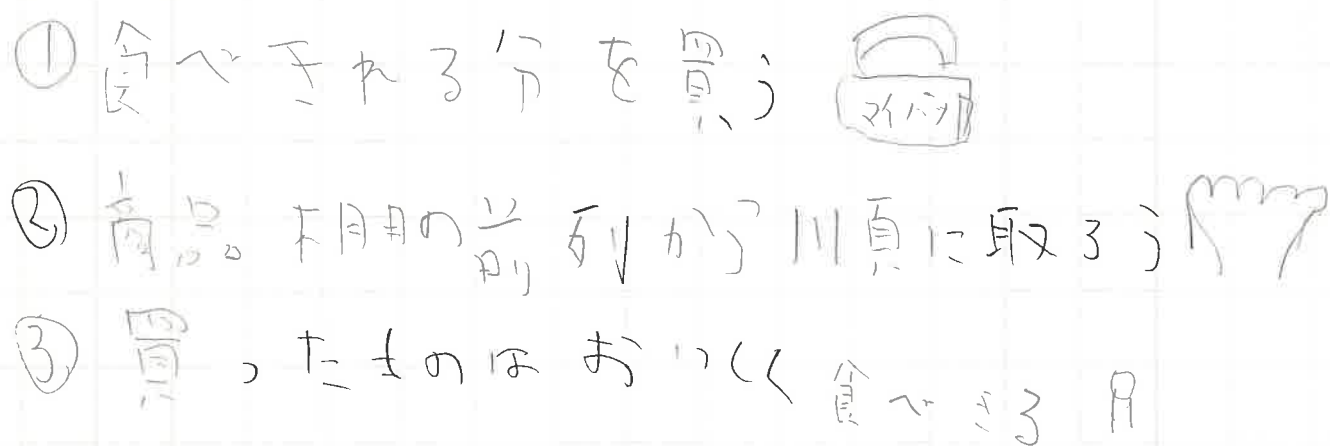 ①食べきれる分を買う
マイバッグ
②商品棚の前列から順に取ろう
③買ったものはおいしく食べきる